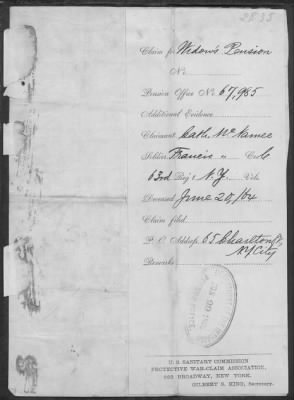 Claim for Widow's Pension
No.
Pension Office No. 67,985
Additional Evidence
Claimant Cath. McNamee
Soldier Francis " Co. C
63rd Reg't N.Y. Vols.
Deceased June 20, /64
Claim filed
P. O. Address, 65 Charlton St,
N.Y. City
Remarks
U. S. SANITARY COMMISSION
PROTECTIVE WAR-CLAIM ASSOCIATION,
GILBERT S. KING, Secretary.